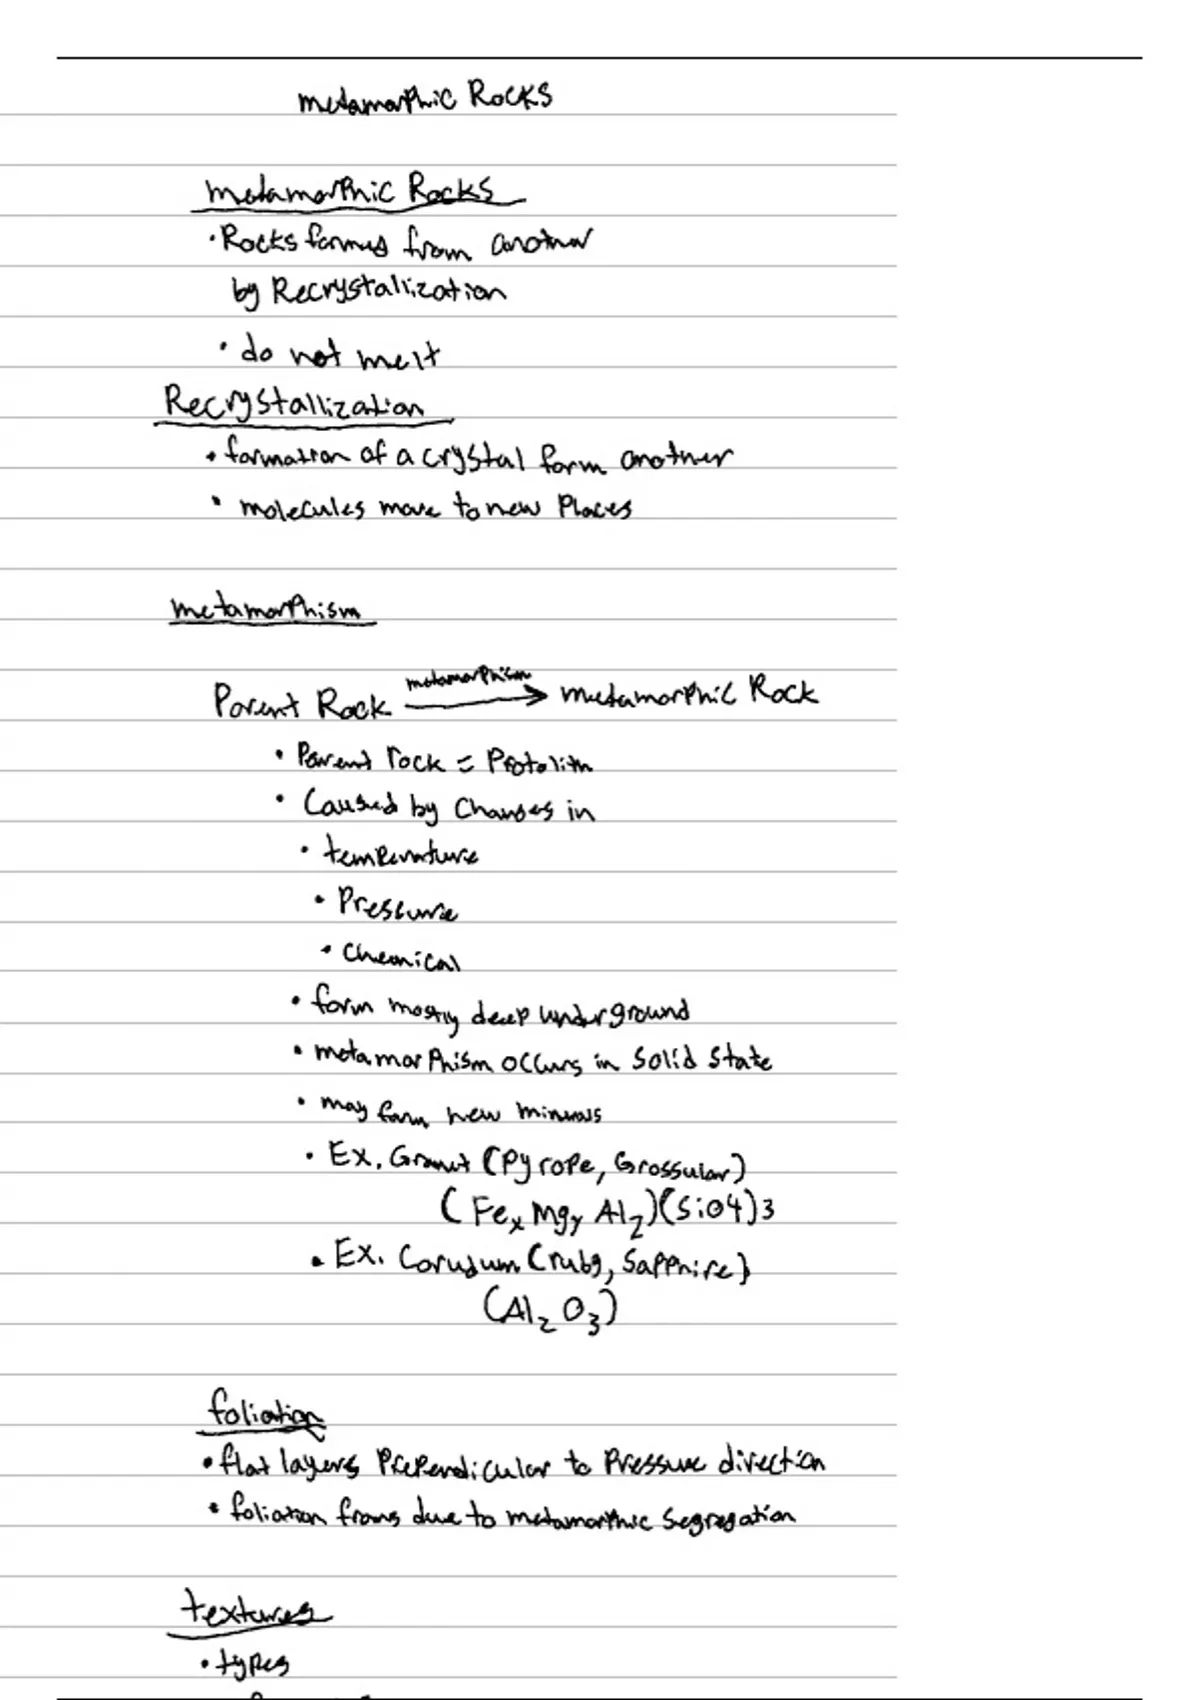 metamorphic Rocks
metamorphic Rocks
• Rocks formed from another
by Recrystallization
• do not melt
Recrystallization
• formation of a crystal form another
• molecules move to new Places
metamorphism
metamorphism
Parent Rock → metamorphic Rock
• Parent rock = Protolith
• Caused by Changes in
• temperature
• Pressure
• Chemical
• form mostly deep underground
• metamorphism occurs in Solid State
• may form new minerals
• Ex. Granut (Pyrope, Grossular)
(Feₓ Mgᵧ Al₂)(SiO4)3
• Ex. Corudum (ruby, Sapphire)
(Al₂ O₃)
foliation
• flat layers Prependicular to Pressure direction
• foliation froms due to metamorphic Segregation
textures
• types